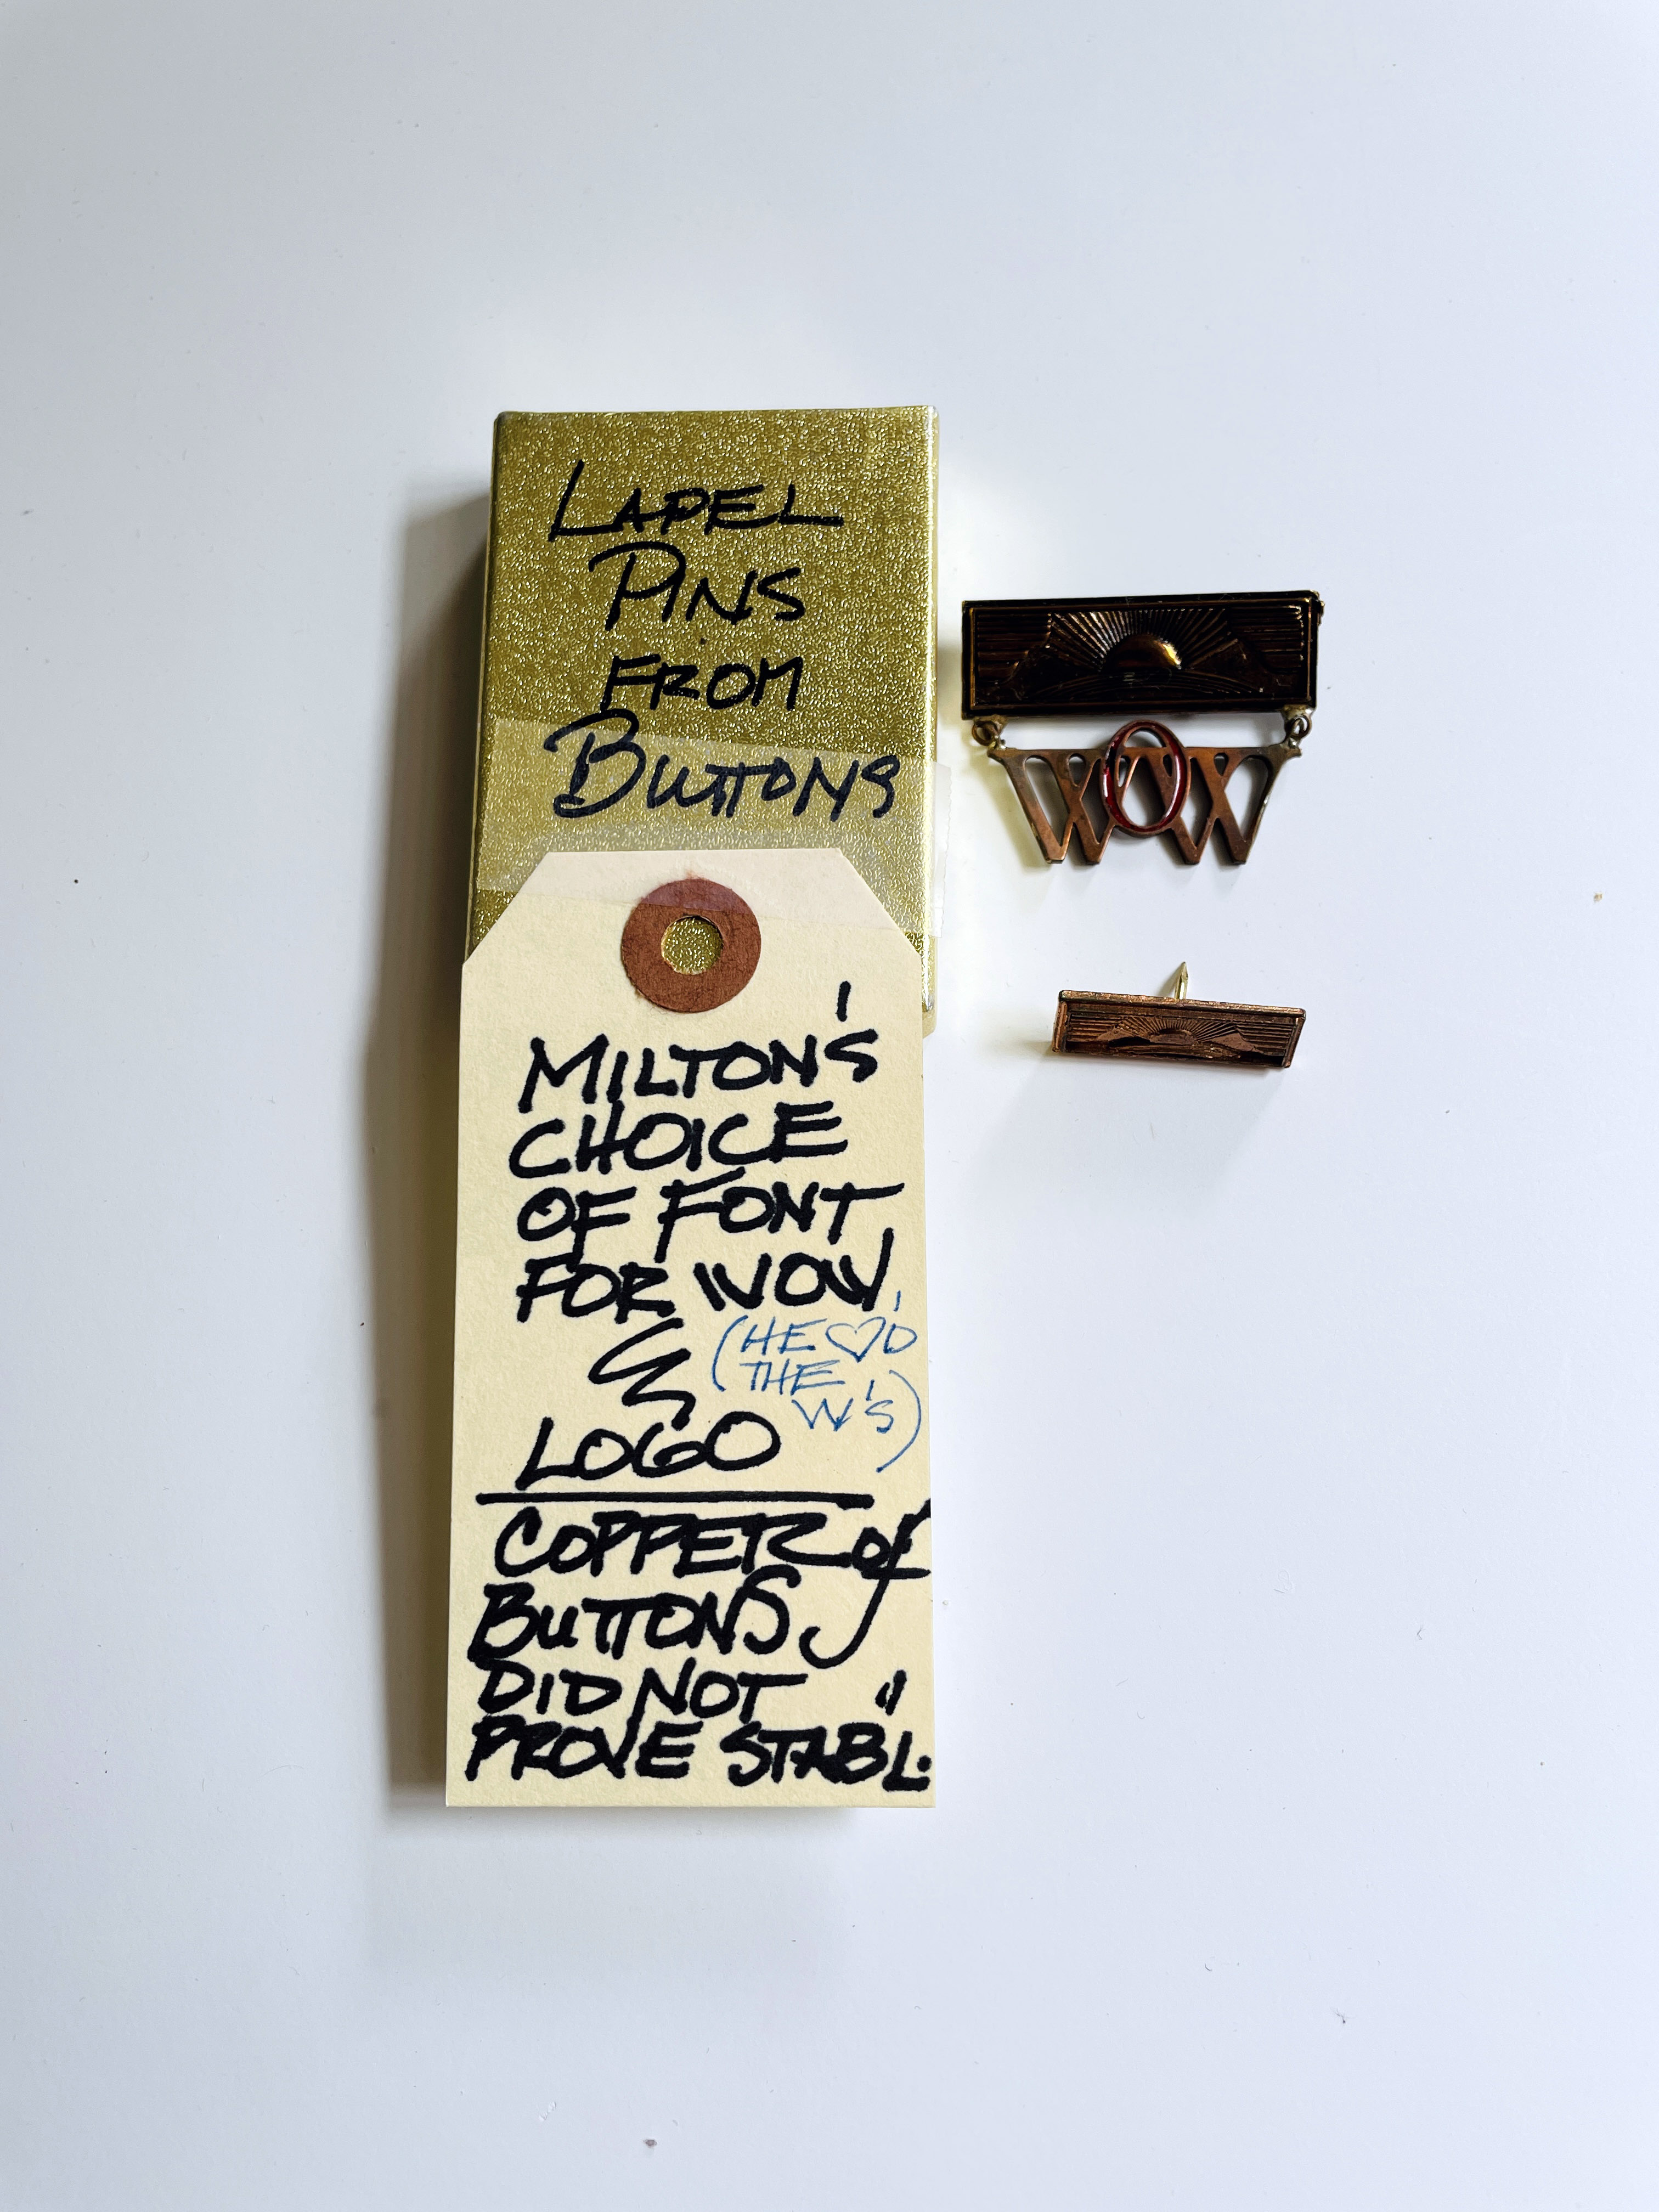 LAPEL
PINS
FROM
BUTTONS
WOW
MILTON'S
CHOICE
OF FONT
FOR WOW,
(HE ♡'D
THE
W'S)
LOGO
COPPER of
BUTTONS
DID NOT
PROVE "STABL.